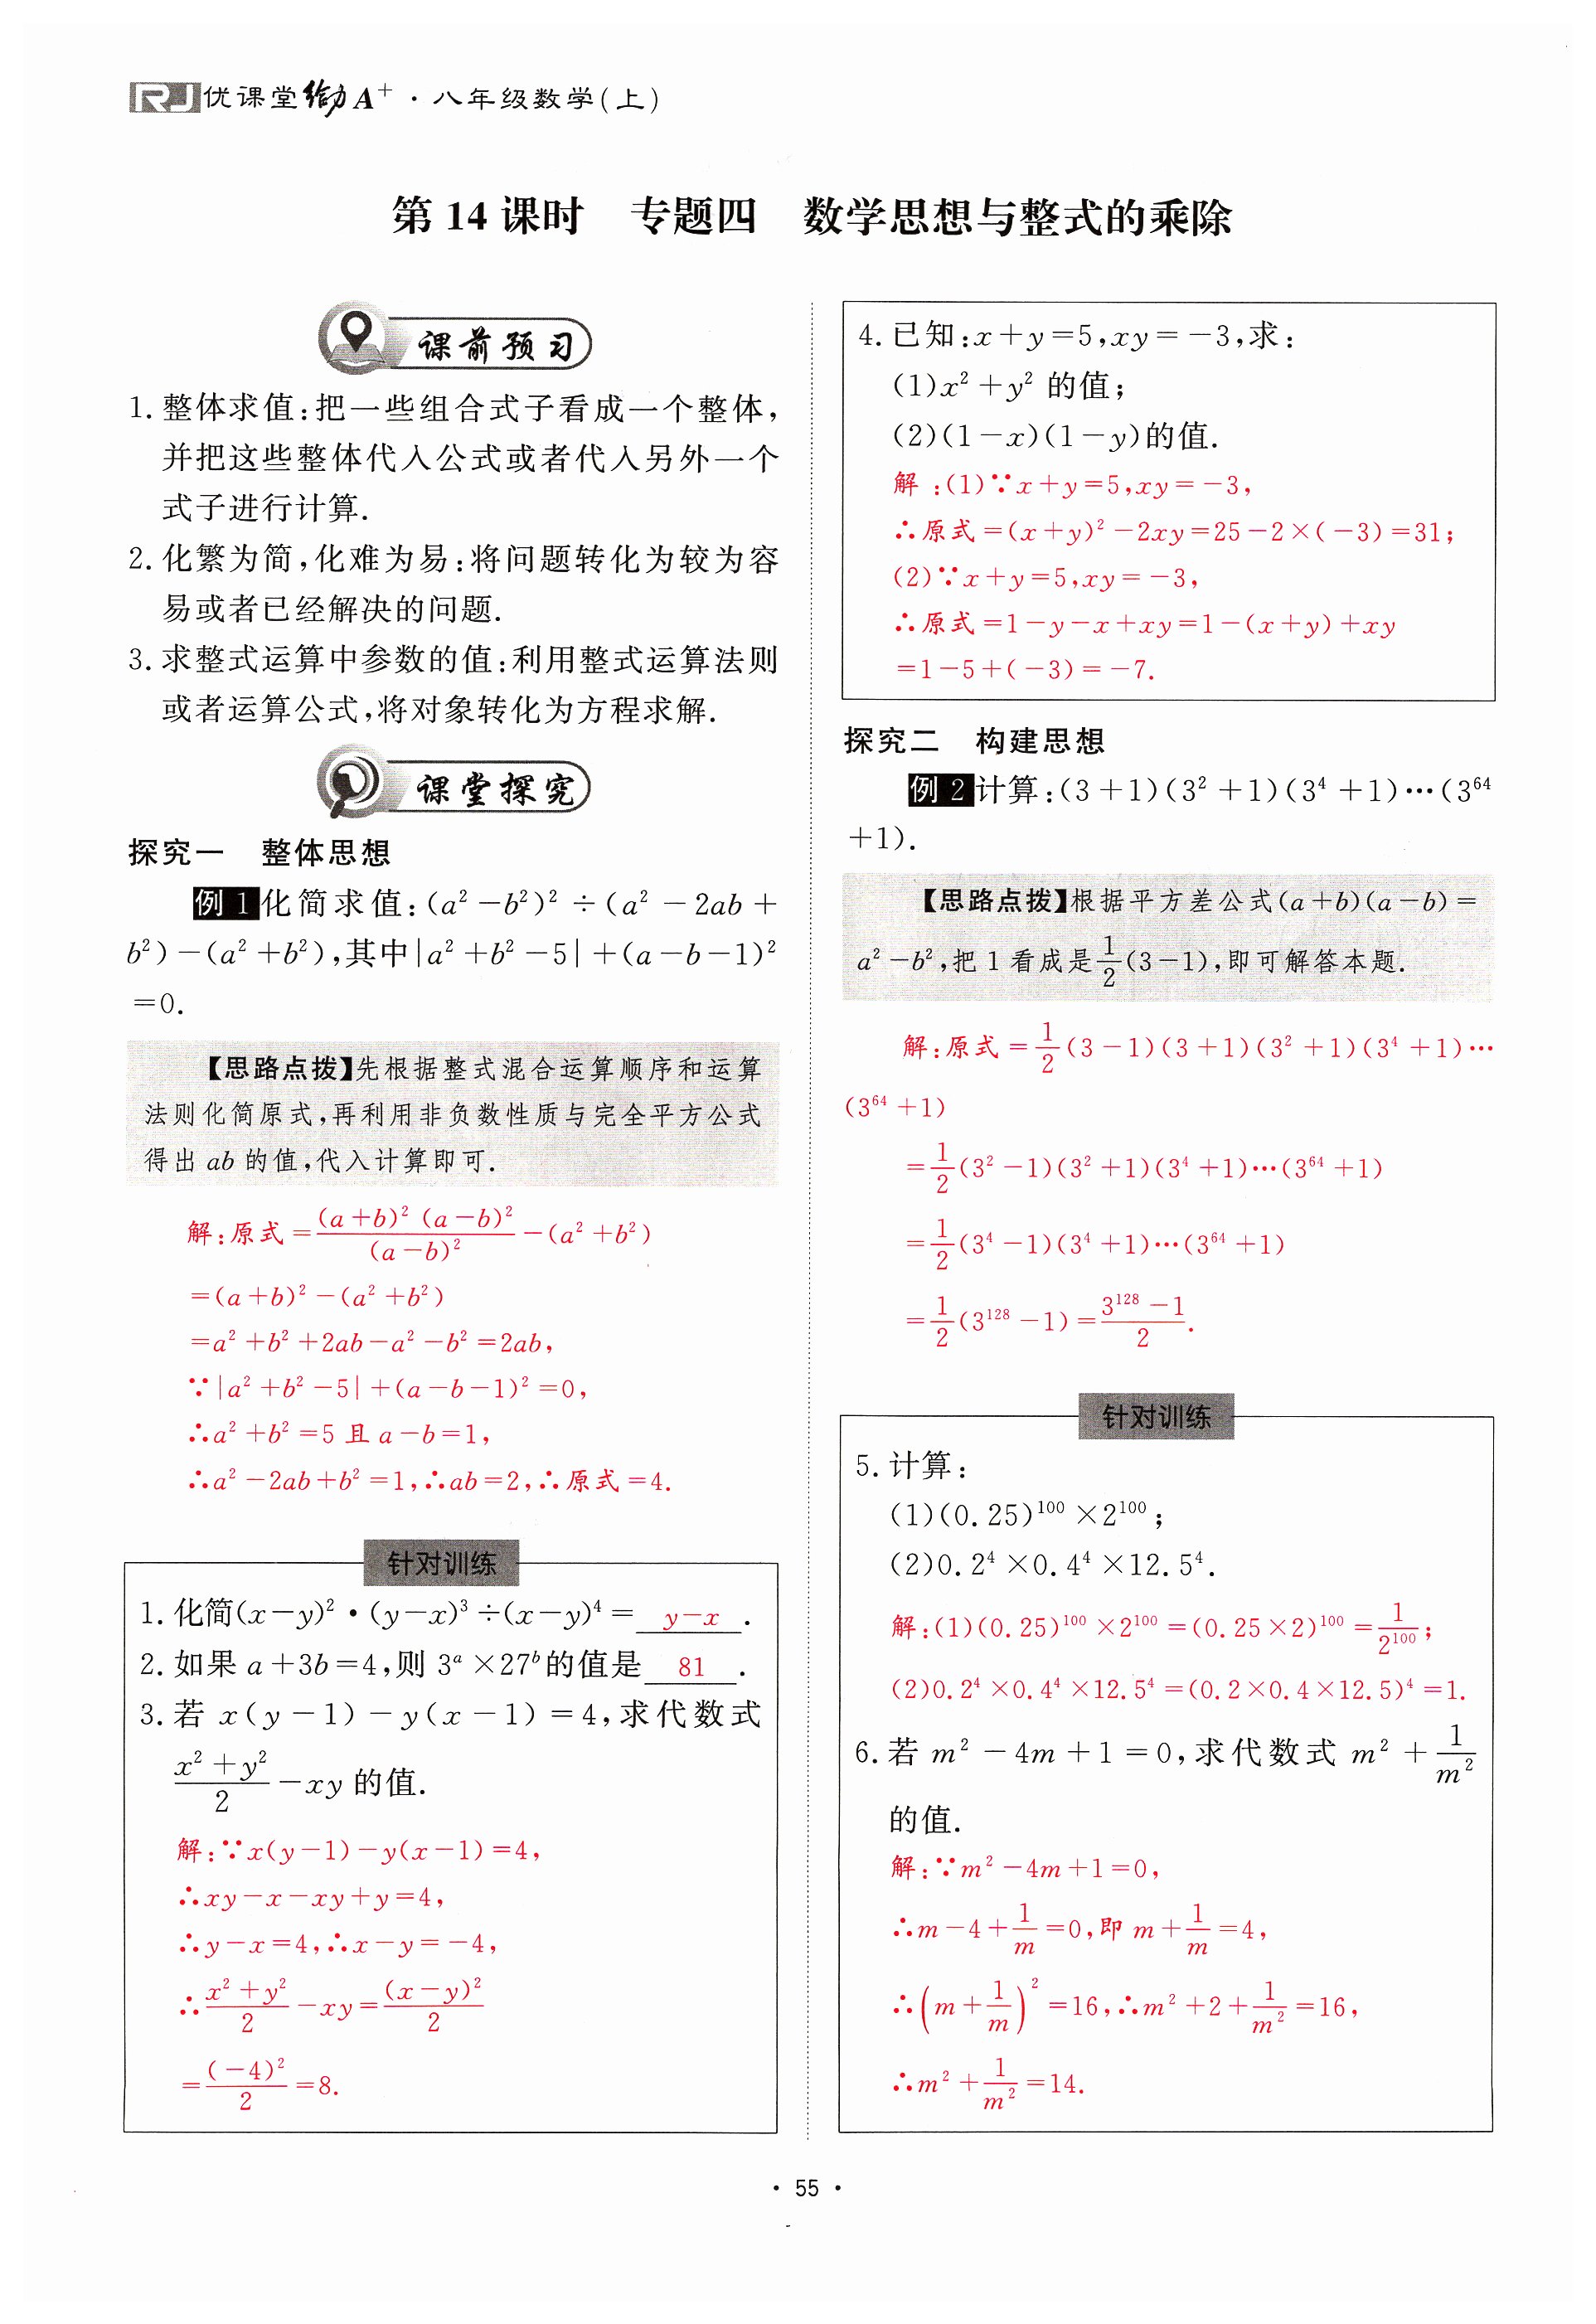 RJ优课堂给力A⁺·八年级数学(上)
第14课时 专题四 数学思想与整式的乘除
课前预习
1. 整体求值:把一些组合式子看成一个整体,
并把这些整体代入公式或者代入另外一个
式子进行计算.
2. 化繁为简,化难为易:将问题转化为较为容
易或者已经解决的问题.
3. 求整式运算中参数的值:利用整式运算法则
或者运算公式,将对象转化为方程求解.
课堂探究
探究一 整体思想
例1 化简求值:(a²-b²)²÷(a²-2ab+
b²)-(a²+b²),其中|a²+b²-5|+(a-b-1)²
=0.
【思路点拨】先根据整式混合运算顺序和运算
法则化简原式,再利用非负数性质与完全平方公式
得出ab的值,代入计算即可.
解:原式=\frac{(a+b)²(a-b)²}{(a-b)²}-(a²+b²)
=(a+b)²-(a²+b²)
=a²+b²+2ab-a²-b²=2ab,
∵|a²+b²-5|+(a-b-1)²=0,
∴a²+b²=5且a-b=1,
∴a²-2ab+b²=1,∴ab=2,∴原式=4.
针对训练
1. 化简(x-y)²·(y-x)³÷(x-y)⁴= y-x .
2. 如果a+3b=4,则3ᵃ×27ᵇ的值是 81 .
3. 若x(y-1)-y(x-1)=4,求代数式
\frac{x²+y²}{2}-xy的值.
解:∵x(y-1)-y(x-1)=4,
∴xy-x-xy+y=4,
∴y-x=4,∴x-y=-4,
∴\frac{x²+y²}{2}-xy=\frac{(x-y)²}{2}
=\frac{(-4)²}{2}=8.
4. 已知:x+y=5,xy=-3,求:
(1)x²+y²的值;
(2)(1-x)(1-y)的值.
解:(1)∵x+y=5,xy=-3,
∴原式=(x+y)²-2xy=25-2×(-3)=31;
(2)∵x+y=5,xy=-3,
∴原式=1-y-x+xy=1-(x+y)+xy
=1-5+(-3)=-7.
探究二 构建思想
例2 计算:(3+1)(3²+1)(3⁴+1)…(3⁶⁴
+1).
【思路点拨】根据平方差公式(a+b)(a-b)=
a²-b²,把1看成是\frac{1}{2}(3-1),即可解答本题.
解:原式=\frac{1}{2}(3-1)(3+1)(3²+1)(3⁴+1)…
(3⁶⁴+1)
=\frac{1}{2}(3²-1)(3²+1)(3⁴+1)…(3⁶⁴+1)
=\frac{1}{2}(3⁴-1)(3⁴+1)…(3⁶⁴+1)
=\frac{1}{2}(3¹²⁸-1)=\frac{3¹²⁸-1}{2}.
针对训练
5. 计算:
(1)(0.25)¹⁰⁰×2¹⁰⁰;
(2)0.2⁴×0.4⁴×12.5⁴.
解:(1)(0.25)¹⁰⁰×2¹⁰⁰=(0.25×2)¹⁰⁰=\frac{1}{2¹⁰⁰};
(2)0.2⁴×0.4⁴×12.5⁴=(0.2×0.4×12.5)⁴=1.
6. 若m²-4m+1=0,求代数式m²+\frac{1}{m²}
的值.
解:∵m²-4m+1=0,
∴m-4+\frac{1}{m}=0,即m+\frac{1}{m}=4,
∴(m+\frac{1}{m})²=16,∴m²+2+\frac{1}{m²}=16,
∴m²+\frac{1}{m²}=14.
· 55 ·